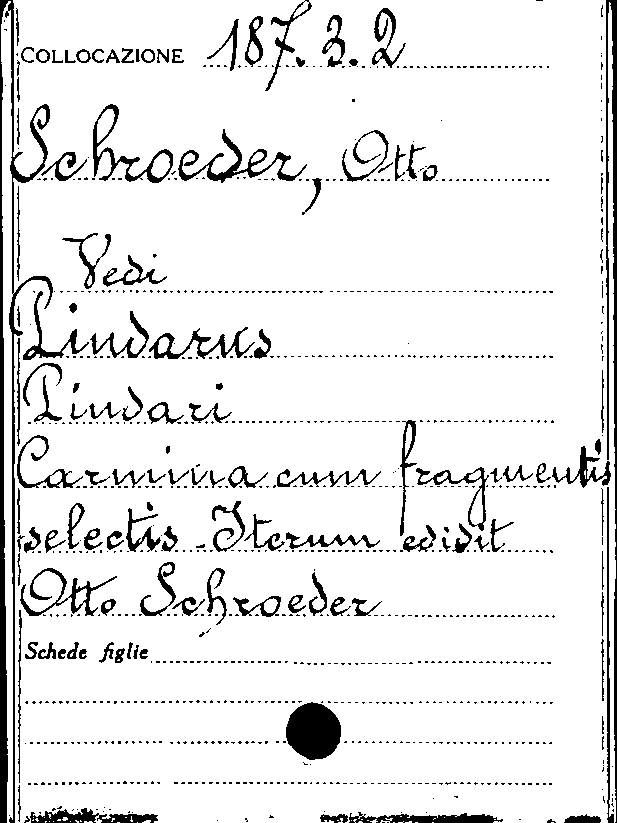 COLLOCAZIONE 187.3.2
Schroeder, Otto
Vedi
Pindarus
Pindari
Carmina cum fragmentis
selectis. Iterum edidit
Otto Schroeder
Schede figlie